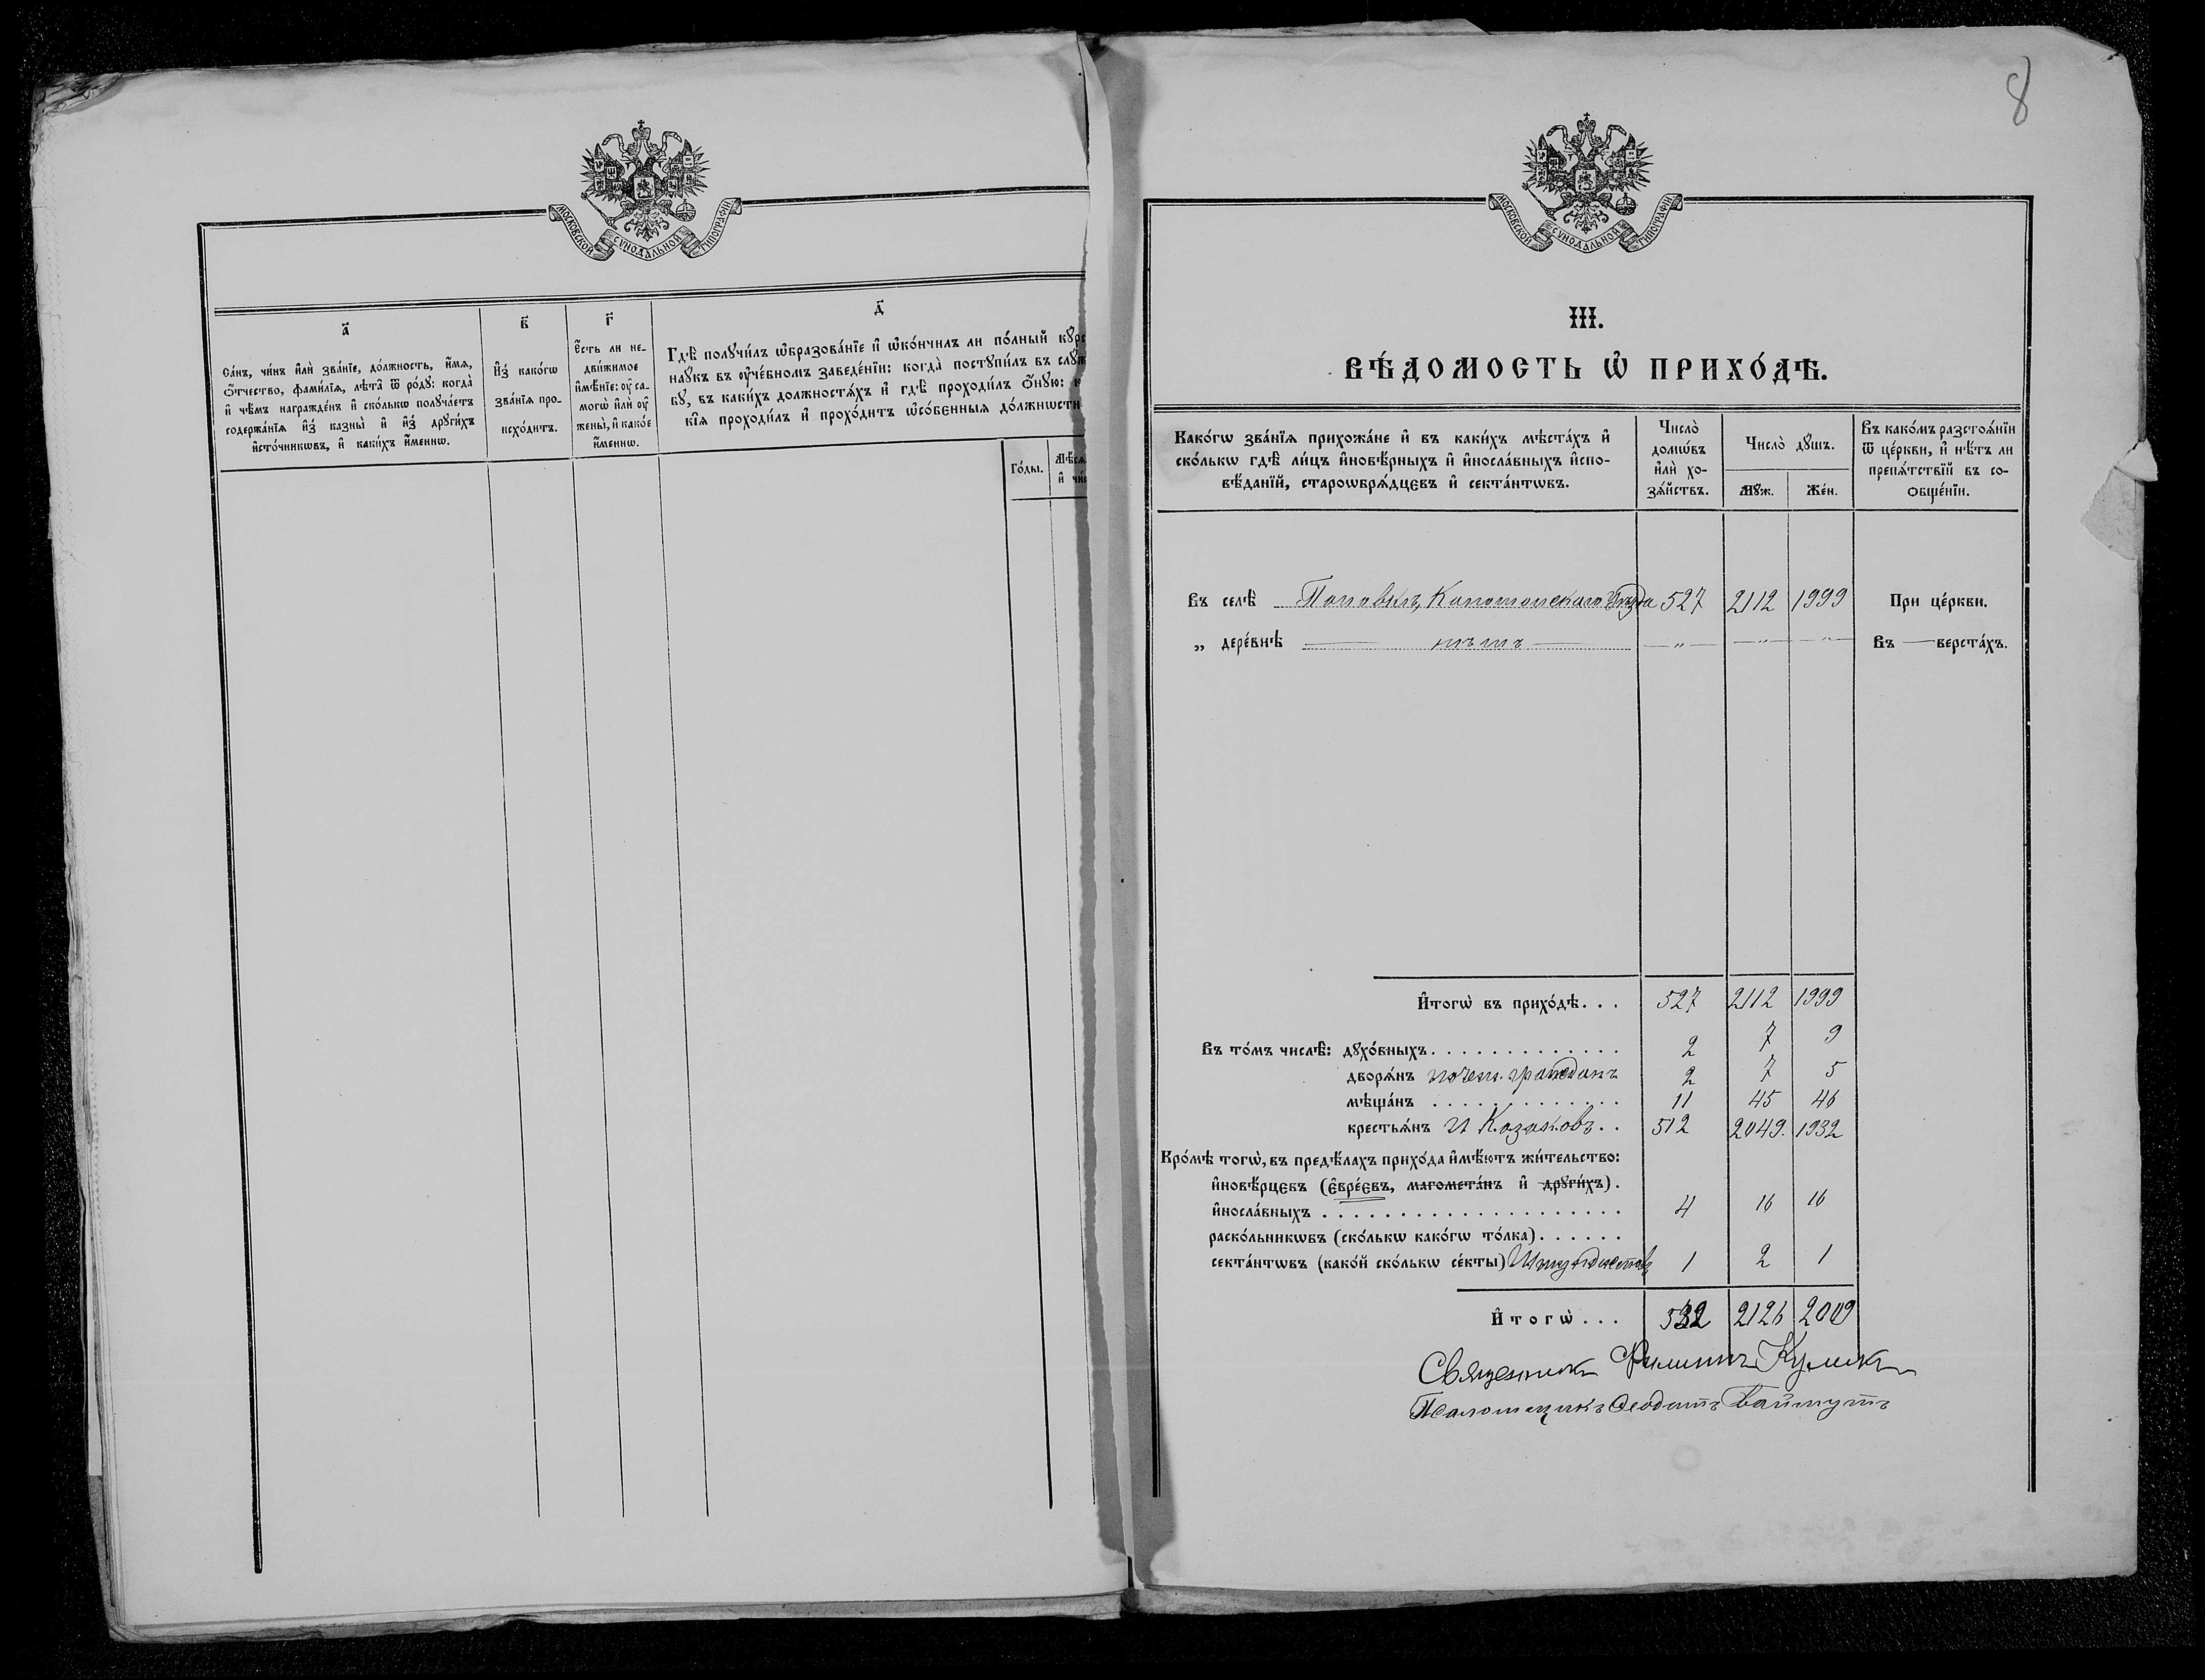 МОСКОВСКОЙ СѴНОДАЛЬНОЙ ТИПОГРАФІИ
а҃
Са́нъ, чи́нъ и҆лѝ зва́нїе, до́лжность, и҆́мѧ,
ѻ҆́тчество, фами́лїѧ, лѣта̀ ѿ ро́дꙋ: когда̀
и҆ чѣ́мъ награжде́нъ и҆ ско́лькѡ полꙋча́етъ
содержа́нїѧ и҆з̾ казны̀ и҆ и҆з̾ дрꙋги́хъ
и҆сто́чникѡвъ, и҆ каки́хъ и҆́меннѡ.
в҃
И҆з̾ како́гѡ
зва́нїѧ про-
исхо́дитъ.
г҃
Є҆́сть ли не-
дви́жимое
и҆мѣ́нїе: ᲂу҆ са-
могѡ̀ и҆лѝ ᲂу҆
жены̀, и҆ како́е
и҆́меннѡ.
д҃
Гдѣ̀ полꙋчи́лъ ѡ҆бразова́нїе и҆ ѡ҆ко́нчилъ ли по́лный кꙋрс
наꙋкъ въ ᲂу҆че́бномъ заведе́нїи: когда̀ постꙋпи́лъ въ слꙋж
бꙋ, въ каки́хъ до́лжностѧхъ и҆ гдѣ̀ проходи́лъ ѻ҆́нꙋю:
кі̑ѧ проходи́лъ и҆ прохо́дитъ ѡ҆со́бенныѧ до́лжнѡсти
Го́ды.
Мѣ́сѧ
и҆ чи
8
МОСКОВСКОЙ СѴНОДАЛЬНОЙ ТИПОГРАФІИ
III.
ВѢ́ДОМОСТЬ Ѡ҆ ПРИХО́ДѢ.
Како́гѡ зва́нїѧ прихожа́не и҆ въ каки́хъ мѣста́хъ и҆
ско́лькѡ гдѣ̀ ли́цъ и҆новѣ́рныхъ и҆ и҆носла́вныхъ и҆спо-
вѣ́данїй, староѡбрѧ́дцевъ и҆ секта́нтѡвъ.
Число̀
домѡ́въ
и҆лѝ хо-
зѧ́йствъ.
Число̀ дꙋ́шъ.
Мꙋж.
Же́н.
Въ како́мъ разстоѧ́нїи
ѿ це́ркви, и҆ нѣ́тъ ли
препѧ́тствїй въ со-
общє́нїи.
Въ селѣ̀ Поповкѣ, Конотопскаго уѣзда 527 2112 1999 При це́ркви.
„ дере́внѣ — нѣтъ — — „ — — „ — — „ — Въ — верста́хъ.
И҆тогѡ̀ въ прихо́дѣ. . . 527 2112 1999
Въ то́мъ числѣ̀: дꙋхо́вныхъ. . . . . . . . . . . . . 2 7 9
дворѧ́нъ почетн. граждан 2 7 5
мѣща́нъ . . . . . . . . . . . . . 11 45 46
крестьѧ́нъ и Козаковъ. . 512 2049. 1932
Кро́мѣ тогѡ̀, въ предѣ́лахъ прихо́да и҆мѣ́ютъ жи́тельство:
и҆новѣ́рцевъ (є҆вре́євъ, магомета́нъ и҆ дрꙋги́хъ).
и҆носла́вныхъ . . . . . . . . . . . . . . . . . . . . 4 16 16
раско́льникѡвъ (ско́лькѡ како́гѡ то́лка). . . . . .
секта́нтѡвъ (како́й ско́лькѡ се́кты) Штундистовъ 1 2 1
И҆тогѡ̀. . . 532 2126 2009
Священникъ Филиппъ
Псаломщикъ Ѳеодотъ